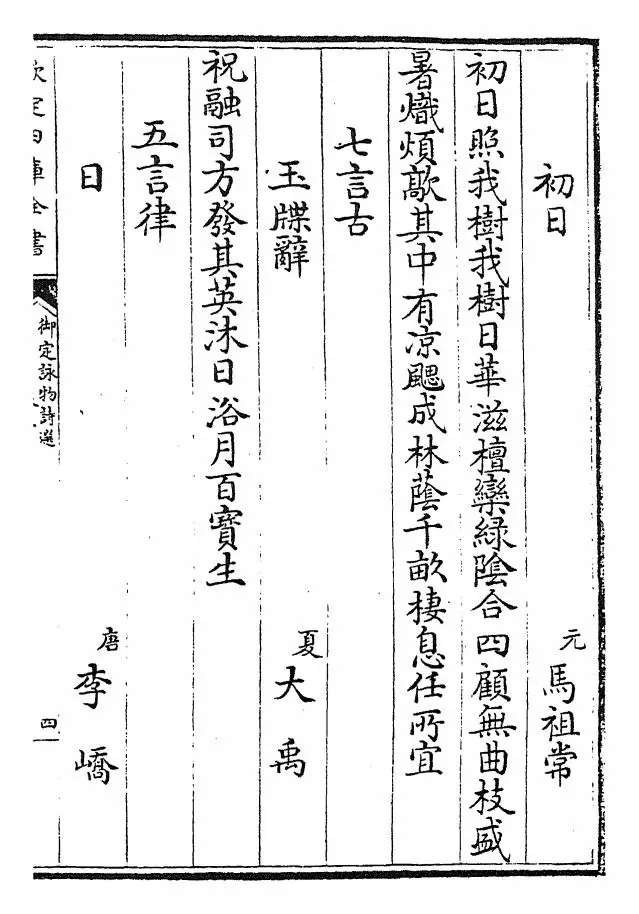 初日　元馬祖常
初日照我樹我樹日華滋檀欒綠陰合四顧無曲枝盛
暑熾煩歊其中有凉颸成林蔭千畝棲息任所宜
七言古
玉牒辭　夏大禹
祝融司方發其英沐日浴月百寶生
五言律
日　唐李嶠
欽定四庫全書
御定詠物詩選
四